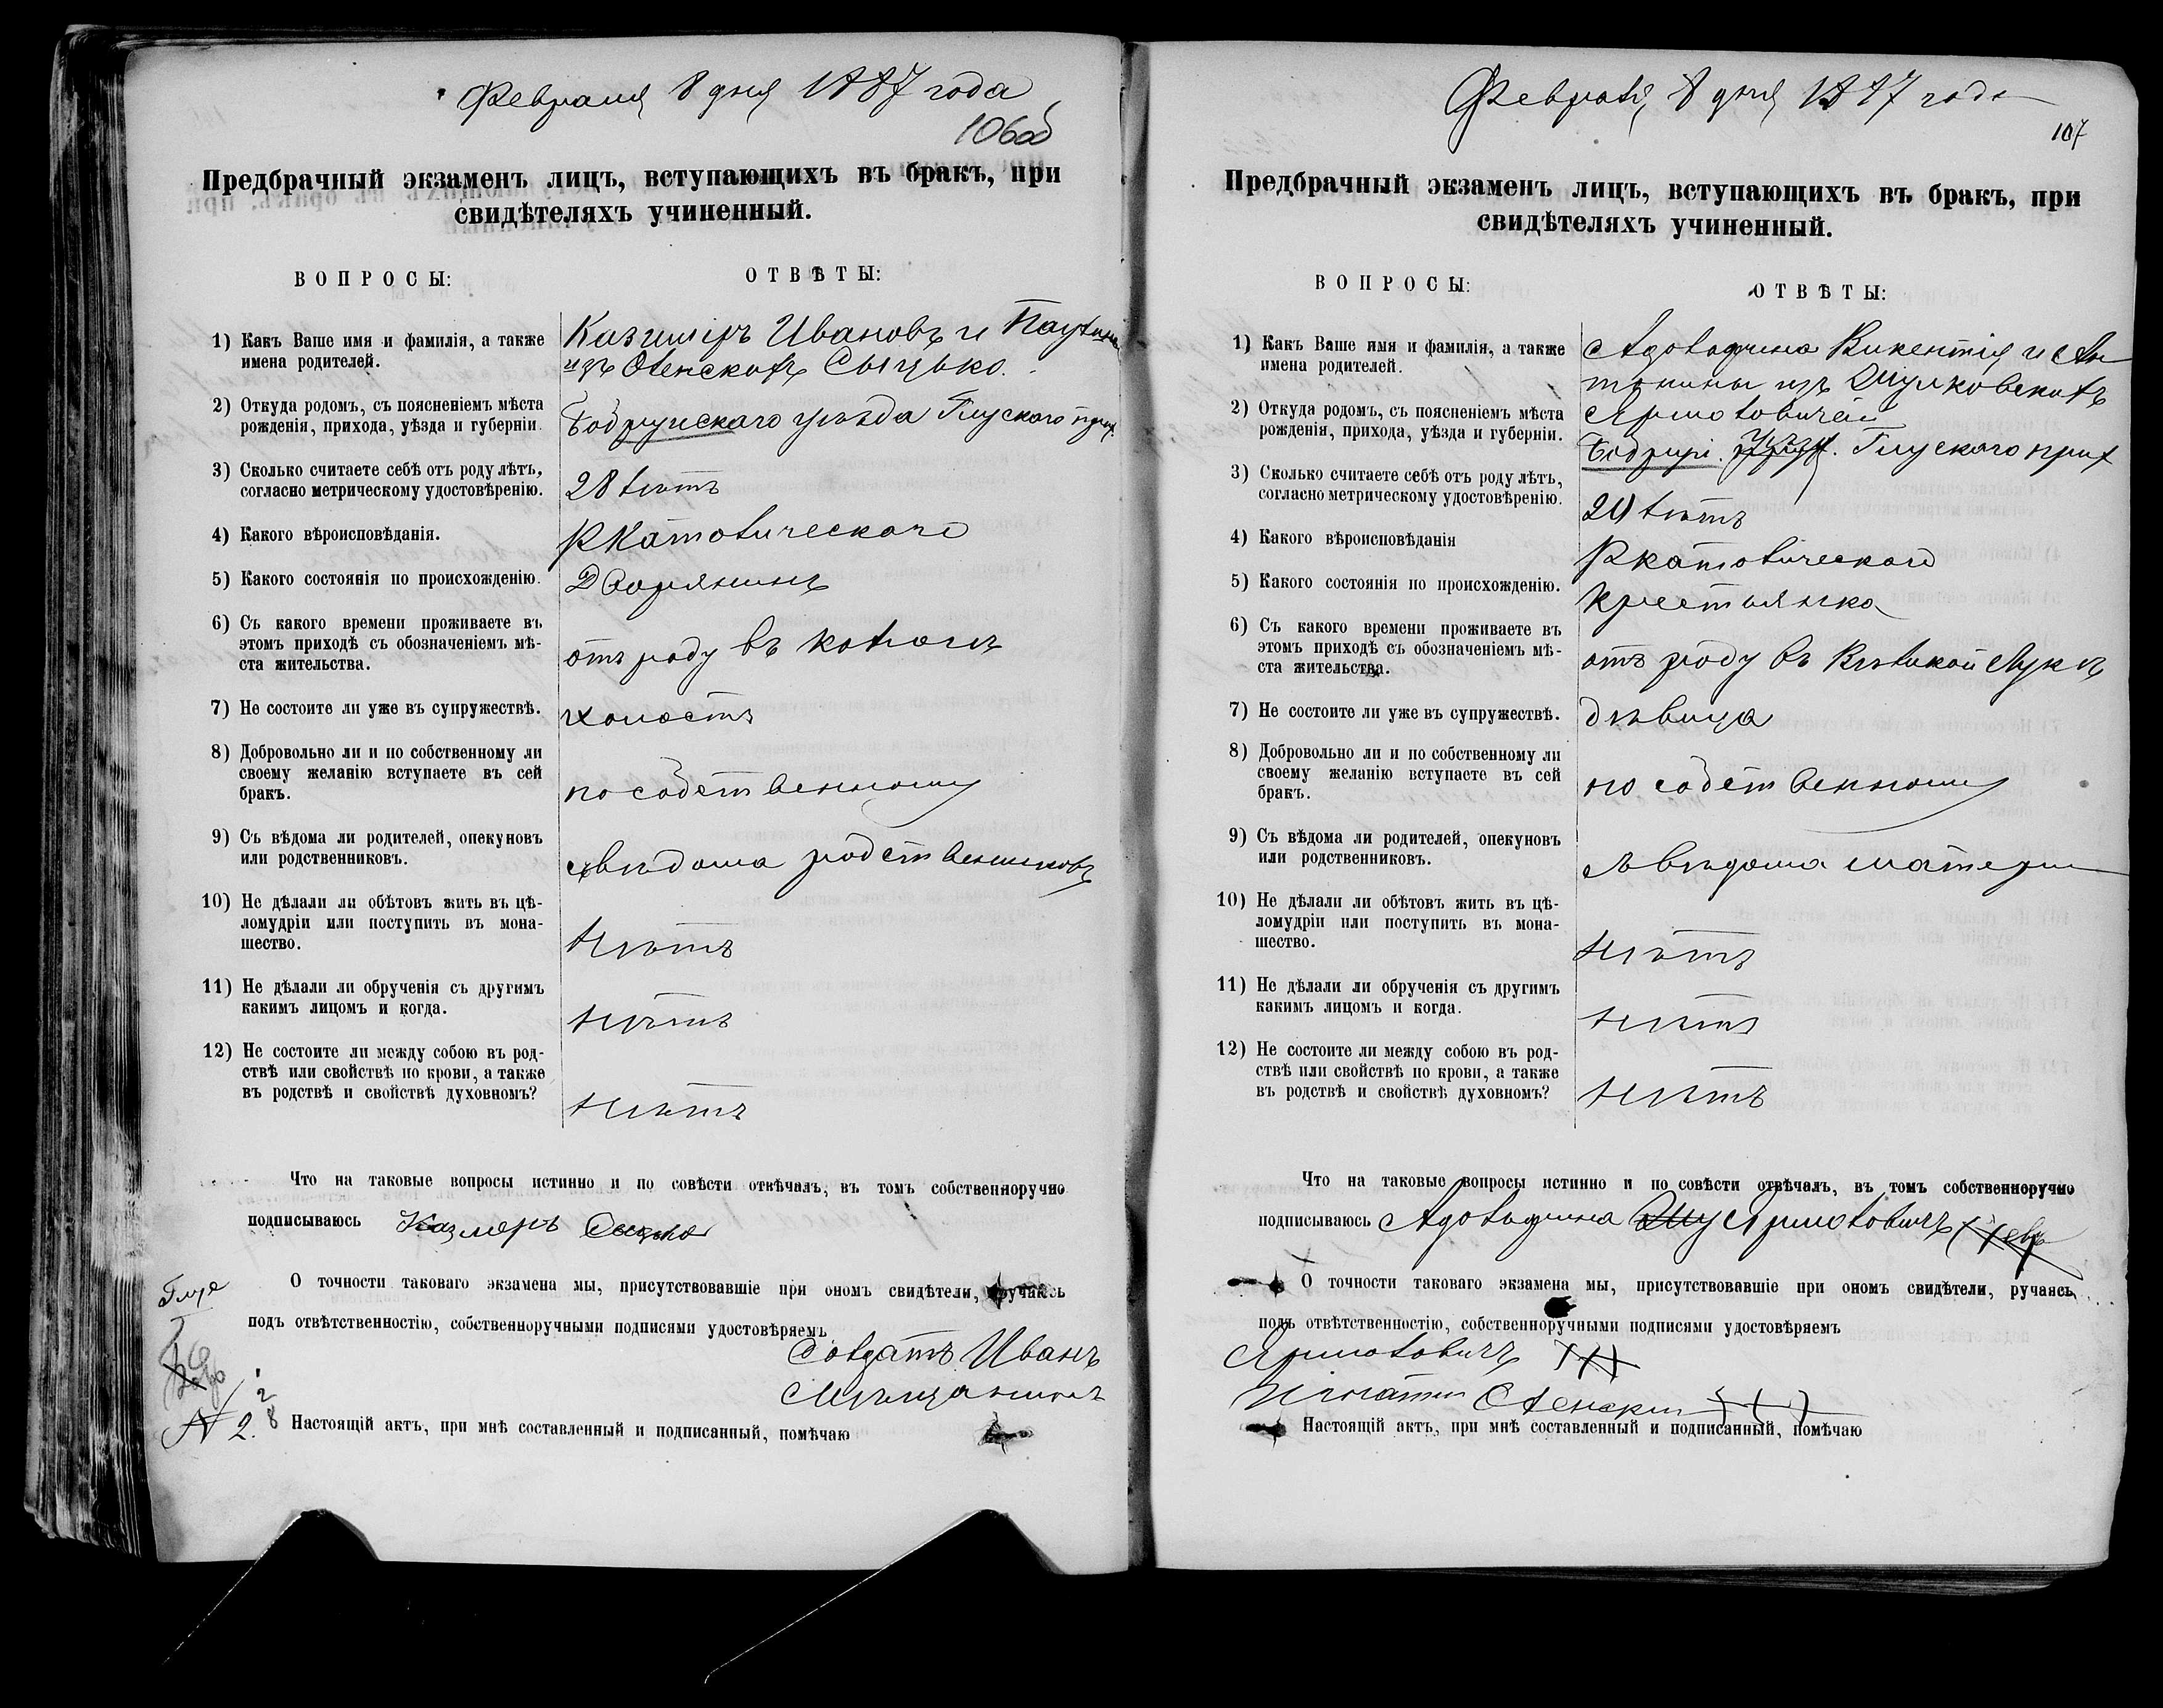 Февраля 8 дня 1887 года
106об
Предбрачный экзаменъ лицъ, вступающихъ въ бракъ, при
свидѣтеляхъ учиненный.
ВОПРОСЫ:
ОТВѢТЫ:
1) Какъ Ваше имя и фамилія, а также
имена родителей.
Казиміръ Ивановъ и Паулина
изъ Оленскихъ Сыцько.
2) Откуда родомъ, съ поясненіемъ мѣста
рожденія, прихода, уѣзда и губерніи.
Бобруйскаго уѣзда Глускаго прих.
3) Сколько считаете себѣ отъ роду лѣтъ,
согласно метрическому удостовѣренію.
28 лѣтъ
4) Какого вѣроисповѣданія.
Р Католическаго
5) Какого состоянія по происхожденію.
Дворянинъ
6) Съ какого времени проживаете въ
этомъ приходѣ съ обозначеніемъ мѣ-
ста жительства.
отъ роду въ
7) Не состоите ли уже въ супружествѣ.
холостъ
8) Добровольно ли и по собственному ли
своему желанію вступаете въ сей
бракъ.
по собственному
9) Съ вѣдома ли родителей, опекуновъ
или родственниковъ.
свѣдома родственниковъ
10) Не дѣлали ли обѣтовъ жить въ цѣ-
ломудріи или поступить въ мона-
шество.
нѣтъ
11) Не дѣлали ли обрученія съ другимъ
какимъ лицомъ и когда.
нѣтъ
12) Не состоите ли между собою въ род-
ствѣ или свойствѣ по крови, а также
въ родствѣ и свойствѣ духовномъ?
нѣтъ
Что на таковые вопросы истинно и по совѣсти отвѣчалъ, въ томъ собственноручно
подписываюсь Казмеръ Сыцко
О точности таковаго экзамена мы, присутствовавшіе при ономъ свидѣтели, ручаясь
подъ отвѣтственностію, собственноручными подписями удостовѣряемъ
Солдатъ Иванъ
N 2. 2
8
Настоящій актъ, при мнѣ составленный и подписанный, помѣчаю
Февраля 8 дня 1887 года
107
Предбрачный экзаменъ лицъ, вступающихъ въ бракъ, при
свидѣтеляхъ учиненный.
ВОПРОСЫ:
ОТВѢТЫ:
1) Какъ Ваше имя и фамилія, а также
имена родителей.
Адольфина Викентія и Ан
тонины изъ Шулковскихъ
Ярмоловичей
2) Откуда родомъ, съ поясненіемъ мѣста
рожденія, прихода, уѣзда и губерніи.
Бобруй. Глускаго прих
3) Сколько считаете себѣ отъ роду лѣтъ,
согласно метрическому удостовѣренію.
20 лѣтъ
4) Какого вѣроисповѣданія
Р католическаго
5) Какого состоянія по происхожденію.
Крестьянка
6) Съ какого времени проживаете въ
этомъ приходѣ съ обозначеніемъ мѣ-
ста жительства.
отъ роду въ Великой Лукѣ
7) Не состоите ли уже въ супружествѣ.
дѣвица
8) Добровольно ли и по собственному ли
своему желанію вступаете въ сей
бракъ.
по собственному
9) Съ вѣдома ли родителей, опекуновъ
или родственниковъ.
съ вѣдома матери
10) Не дѣлали ли обѣтовъ жить въ цѣ-
ломудріи или поступить въ мона-
шество.
нѣтъ
11) Не дѣлали ли обрученія съ другимъ
какимъ лицомъ и когда.
нѣтъ
12) Не состоите ли между собою въ род-
ствѣ или свойствѣ по крови, а также
въ родствѣ и свойствѣ духовномъ?
нѣтъ
Что на таковые вопросы истинно и по совѣсти отвѣчалъ, въ томъ собственноручно
подписываюсь Адольфина Шу Ярмоловичъ
О точности таковаго экзамена мы, присутствовавшіе при ономъ свидѣтели, ручаясь
подъ отвѣтственностію, собственноручными подписями удостовѣряемъ
Ярмоловичъ +++
Игнатій Оленскій +++
Настоящій актъ, при мнѣ составленный и подписанный, помѣчаю